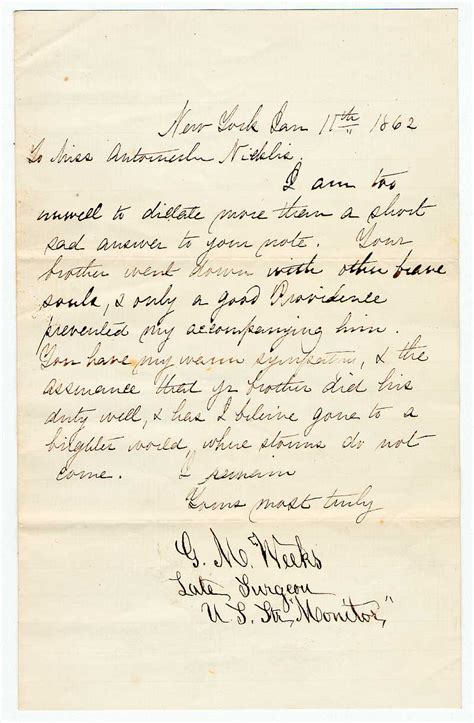 New York Jan 11th 1862
To Miss Antoinette Nicklis.
I am too
unwell to dictate more than a short
sad answer to your note. Your
brother went down with other brave
souls, & only a good Providence
prevented my accompanying him.
You have my warm sympathies, & the
assurance that yr brother did his
duty well, & has I believe gone to a
brighter world, where storms do not
come. I remain
Yours most truly
G. M. Weeks
Late Surgeon
U. S. Str "Monitor,"